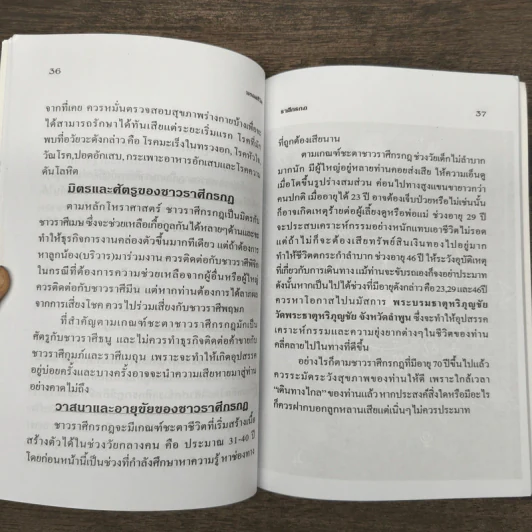 36
จากที่เคย ควรหมั่นตรวจสอบสุขภาพร่างกายบ้างเพื่อจะ
ได้สามารถรักษาได้ทันเสียแต่ระยะเริ่มแรก โรคที่มัก
พบที่อวัยวะดังกล่าว คือ โรคมะเร็งในทรวงอก, โรคหัวใจ,
วัณโรค,ปอดอักเสบ, กระเพาะอาหารอักเสบและโรคความ
ดันโลหิต
มิตรและศัตรูของชาวราศีกรกฎ
ตามหลักโหราศาสตร์ ชาวราศีกรกฎเป็นมิตรกับ
ชาวราศีเมษ ซึ่งจะช่วยเหลือเกื้อกูลกันได้หลายๆด้านและจะ
ทำให้ธุรกิจการงานคล่องตัวขึ้นมากทีเดียว แต่ถ้าต้องการ
หาลูกน้อง(บริวาร)มาร่วมงาน ควรติดต่อกับชาวราศีพิจิก
ในกรณีที่ต้องการความช่วยเหลือจากผู้อื่นหรือผู้ใหญ่
ควรติดต่อกับชาวราศีมีน แต่หากท่านต้องการได้ลาภลอย
จากการเสี่ยงโชค ควรไปร่วมเสี่ยงกับชาวราศีพฤษภ
ที่สำคัญตามเกณฑ์ชะตาชาวราศีกรกฎมักเป็น
ศัตรูกับชาวราศีธนู และไม่ควรทำธุรกิจติดต่อค้าขายกับ
ชาวราศีกุมภ์และราศีเมถุน เพราะจะทำให้เกิดอุปสรรค
อยู่บ่อยครั้งและบางครั้งอาจจะนำความเสียหายมาสู่ท่าน
อย่างคาดไม่ถึง
วาสนาและอายุขัยของชาวราศีกรกฎ
ชาวราศีกรกฎจะมีเกณฑ์ชะตาชีวิตที่เริ่มสร้างเนื้อ
สร้างตัวได้ในช่วงวัยกลางคน คือ ประมาณ 31-40 ปี
โดยก่อนหน้านี้เป็นช่วงที่กำลังศึกษาหาความรู้ หาช่องทาง
ราศีกรกฎ
37
ที่ถูกต้องเสียนาน
ตามเกณฑ์ชะตาชาวราศีกรกฎ ช่วงวัยเด็กไม่ลำบาก
มากนัก มีผู้ใหญ่อยู่หลายท่านคอยส่งเสีย ให้ความเอ็นดู
เมื่อโตขึ้นรูปร่างสมส่วน ค่อนไปทางสูงแขนขายาวกว่า
คนปกติ เมื่ออายุได้ 23 ปี อาจต้องเจ็บป่วยหรือไม่เช่นนั้น
ก็อาจเกิดเหตุร้ายต่อผู้เลี้ยงดูหรือพ่อแม่ ช่วงอายุ 29 ปี
จะประสบเคราะห์กรรมอย่างหนักแทบเอาชีวิตไม่รอด
แต่ถ้าไม่ก็จะต้องเสียทรัพย์สินเงินทองไปอยู่มาก
ทำให้ชีวิตตกระกำลำบาก ช่วงอายุ 46 ปี ให้ระวังอุบัติเหตุ
ที่เกี่ยวกับการเดินทาง แม้ท่านจะขับรถเองก็จงอย่าประมาท
ดังนั้นหากเป็นไปได้ช่วงที่มีอายุดังกล่าว คือ 23,29 และ46ปี
ควรหาโอกาสไปนมัสการ พระบรมธาตุหริภุญชัย
วัดพระธาตุหริภุญชัย จังหวัดลำพูน ซึ่งจะทำให้อุปสรรค
เคราะห์กรรมและความยุ่งยากต่างๆในชีวิตของท่าน
คลี่คลายไปในทางที่ดีขึ้น
อย่างไรก็ตามชาวราศีกรกฎที่มีอายุ 70 ปีขึ้นไปแล้ว
ควรระมัดระวังสุขภาพของท่านให้ดี เพราะใกล้เวลา
"เดินทางไกล" ของท่านแล้ว หากประสงค์สิ่งใดหรือมีอะไร
ก็ควรฝากบอกลูกหลานเสียแต่เนิ่นๆไม่ควรประมาท